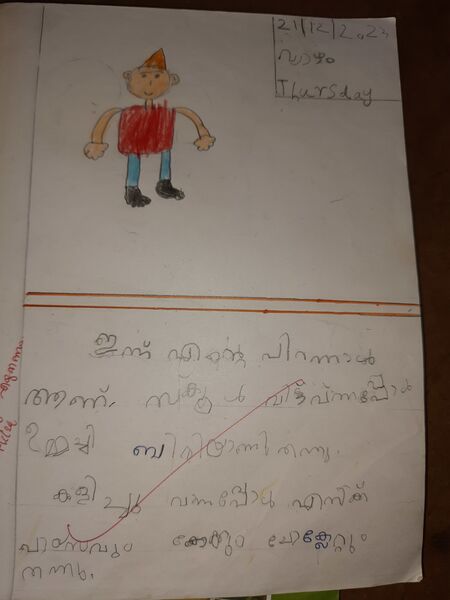 21/12/2023
വ്യാഴം
Thursday
ഇന്ന് എന്റെ പിറന്നാൾ
ആണ്. സ്കൂൾ വിട്ട്വന്നപ്പോൾ
ഉമ്മച്ചി ബിരിയാണി തന്നു.
കളിച്ചു വന്നപ്പോൾ എനിക്ക്
പായസവും കേക്കും ചോക്ലേറ്റും
തന്നു.